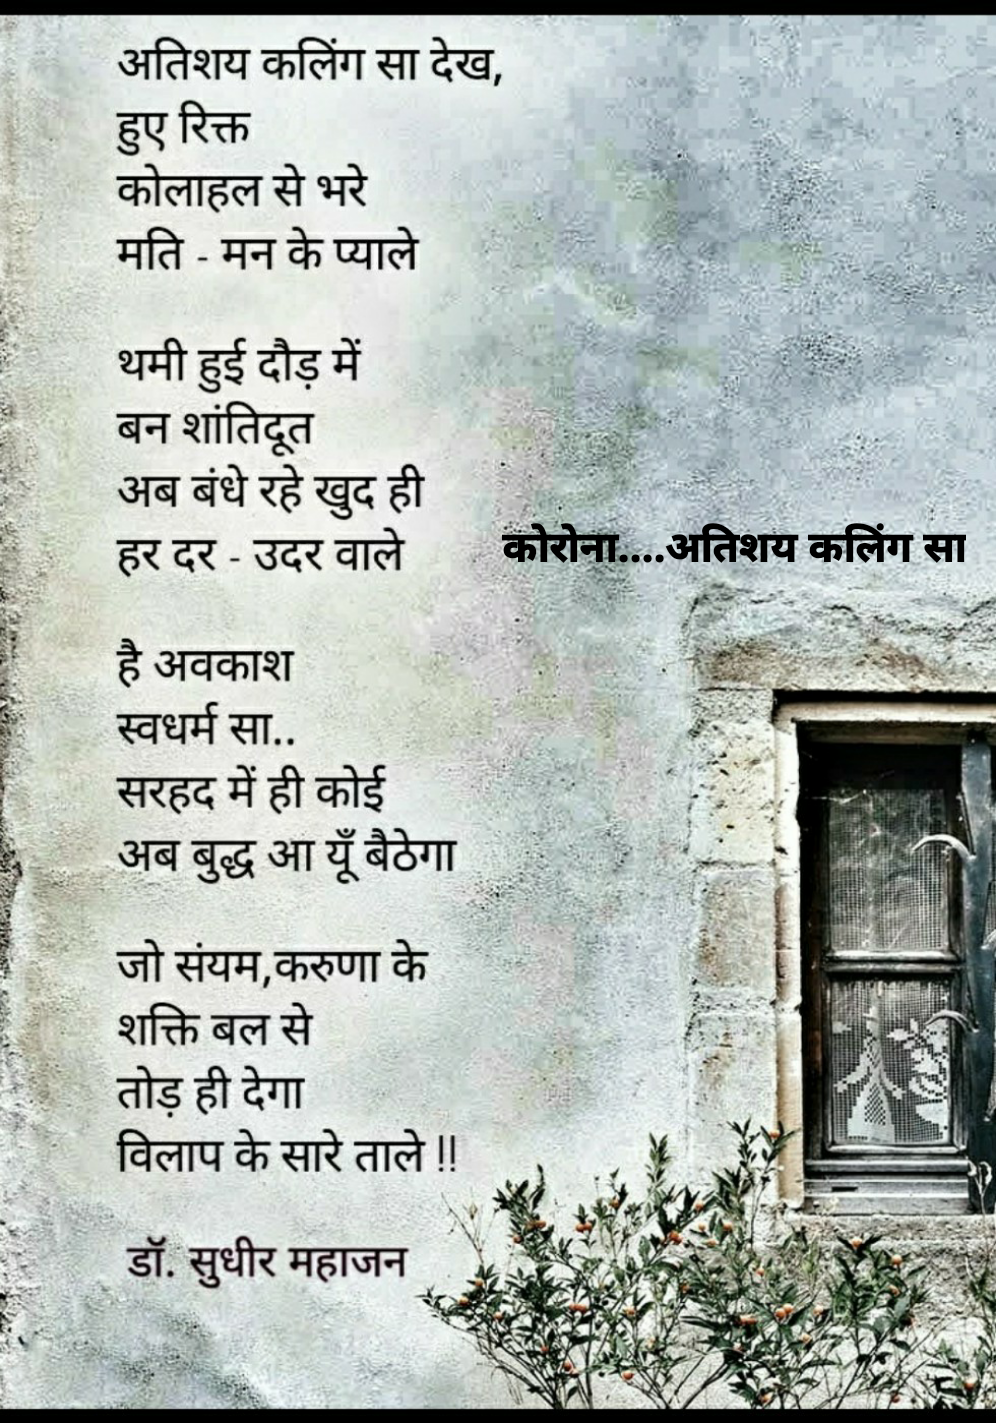 अतिशय कलिंग सा देख,
हुए रिक्त
कोलाहल से भरे
मति - मन के प्याले
थमी हुई दौड़ में
बन शांतिदूत
अब बंधे रहे खुद ही
हर दर - उदर वाले
कोरोना....अतिशय कलिंग सा
है अवकाश
स्वधर्म सा..
सरहद में ही कोई
अब बुद्ध आ यूँ बैठेगा
जो संयम,करुणा के
शक्ति बल से
तोड़ ही देगा
विलाप के सारे ताले !!
डॉ. सुधीर महाजन